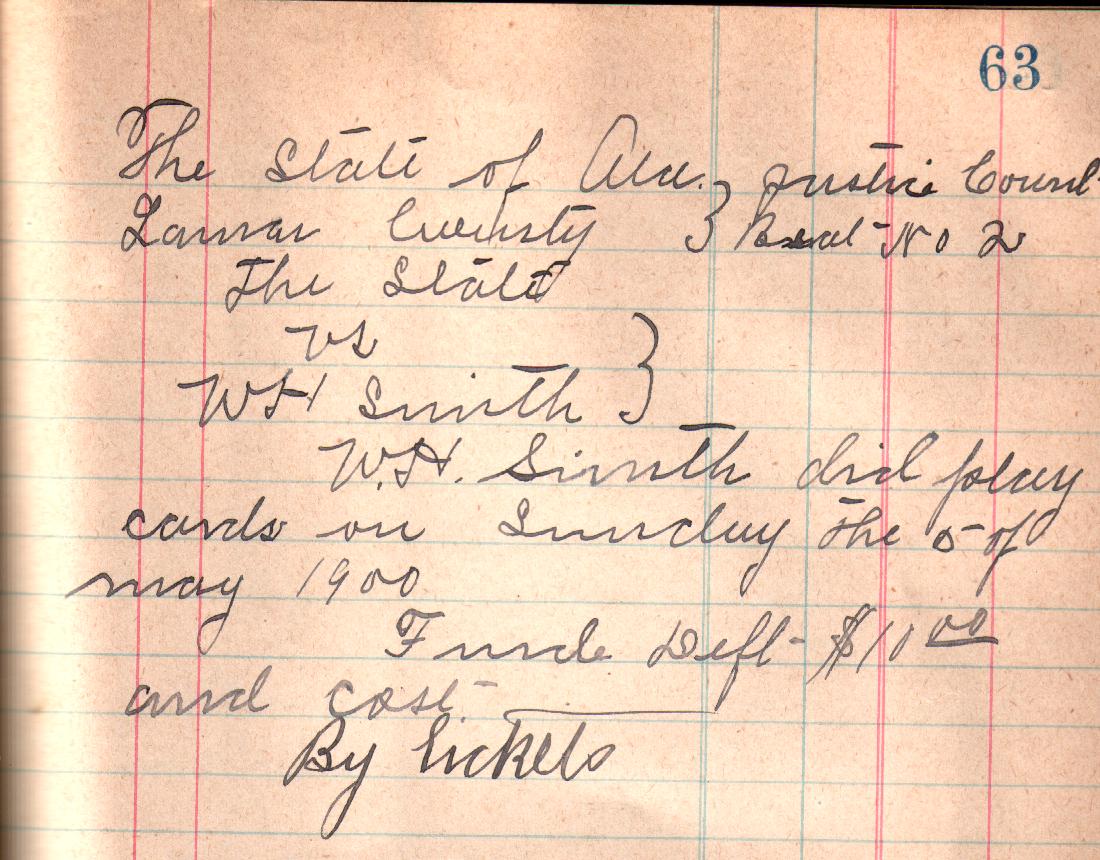 63
The State of Ala. } Justice Court
Lamar County } Beat No 2
The State
vs
W H Smith }
W.H. Smith did play
cards on Sunday the 5 of
may 1900
Deft $10 00
and cost
By